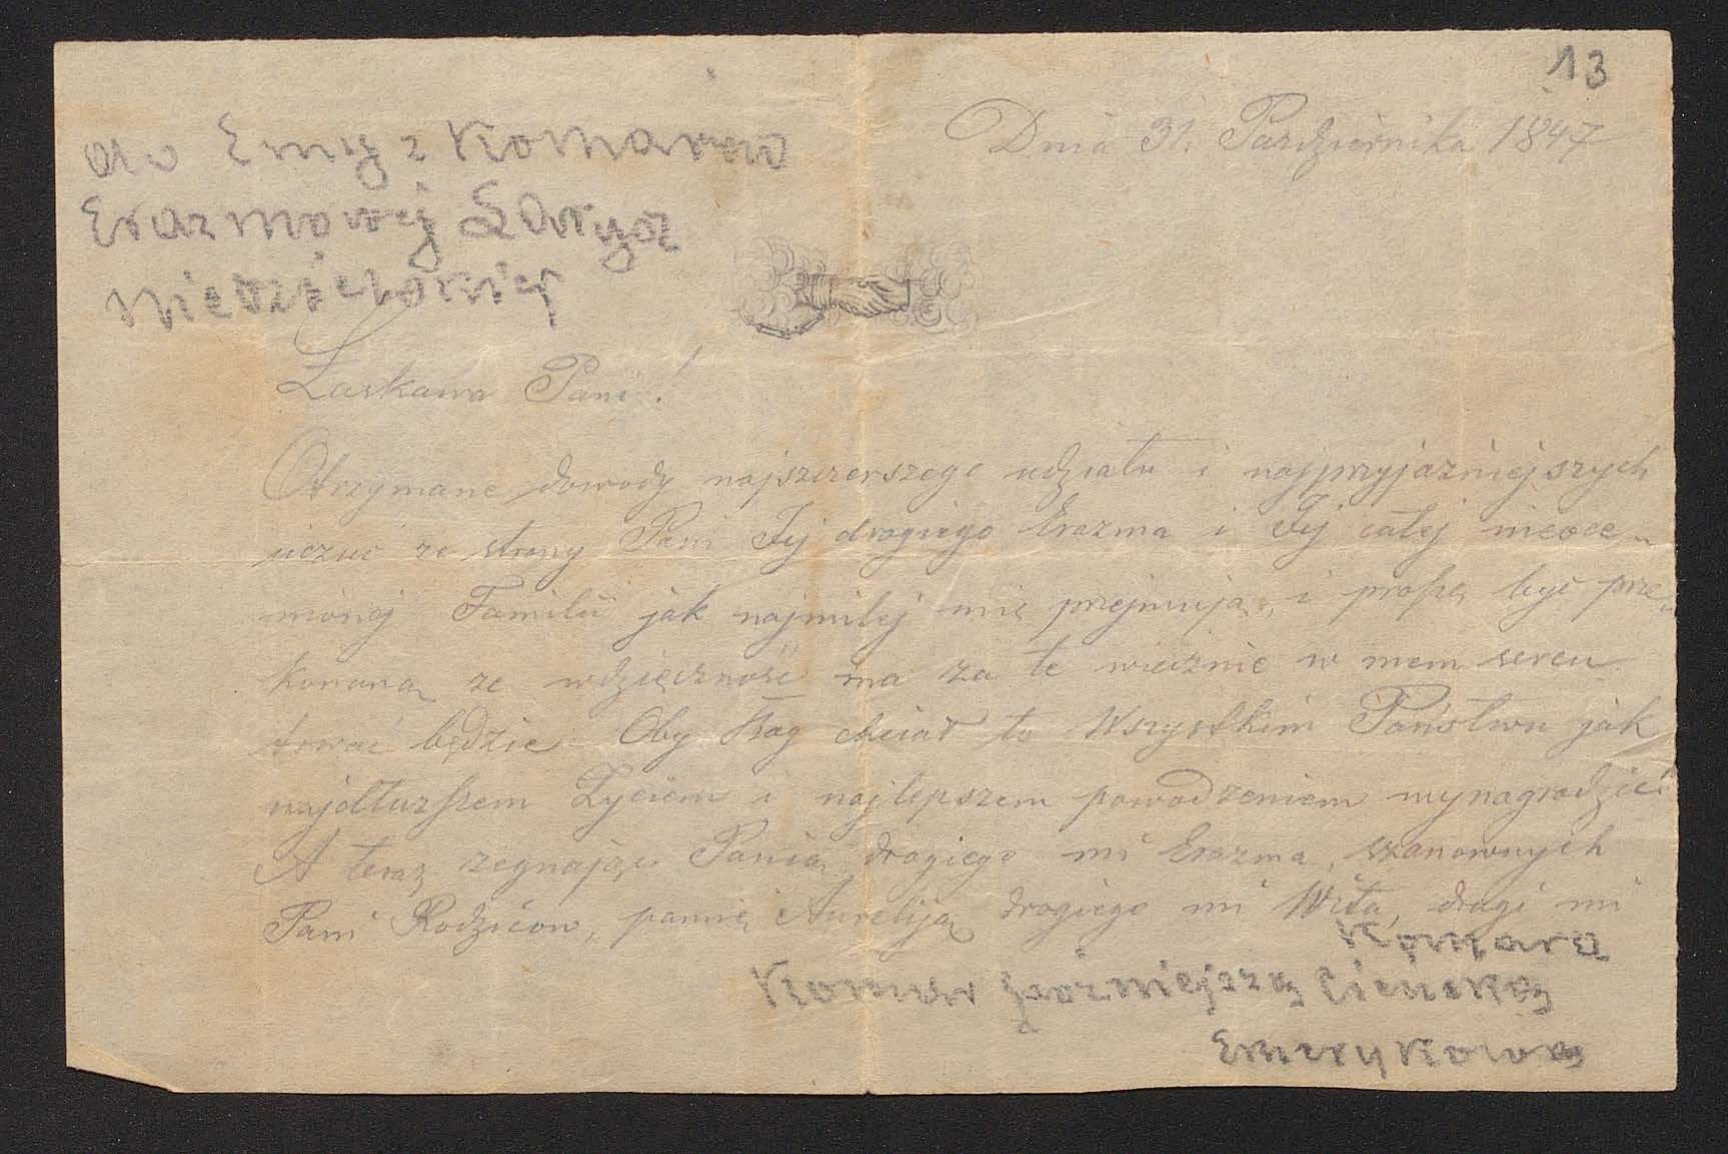 13
Dnia 31. Pazdziernika 1847
do Emy z Komarow
Erazmowej
Łaskawa Pani!
Otrzymane dowody najszczerszego udziału i najprzyjaźniejszych
uczuć ze strony Pani Jej drogiego Erazma i Jej całej nieoce„
nionej Familii jak najmilej mię przejmują, i proszę być prze„
konaną ze wdzięczność ma za te wiecznie w mem sercu
trwać będzie. Oby Bóg chciał to Wszystkim Państwu jak
najdłuzszem Zyciem i najlepszem powodzeniem wynagrodzić!
A teraz zegnając Panią drogiego mi Erazma, szanownych
Pani Rodziców, pannię Aureliją drogiego mi Wita, drogi mi
Komara
późniejszą Cieńską
Emerykową